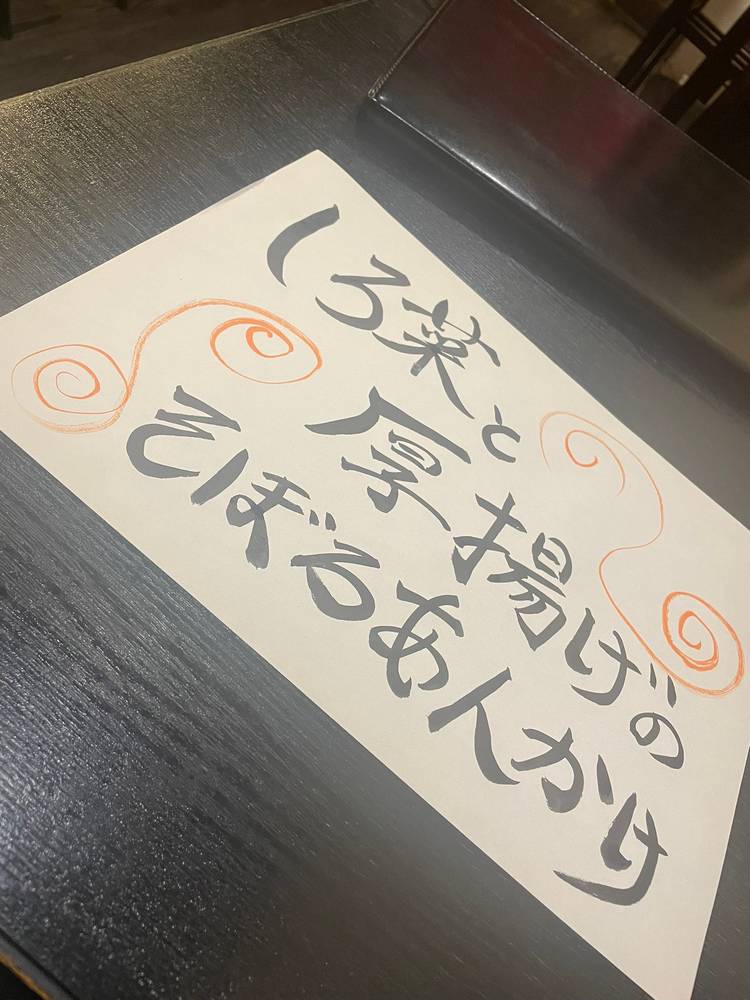 しろ菜と
厚揚げの
そぼろあんかけ